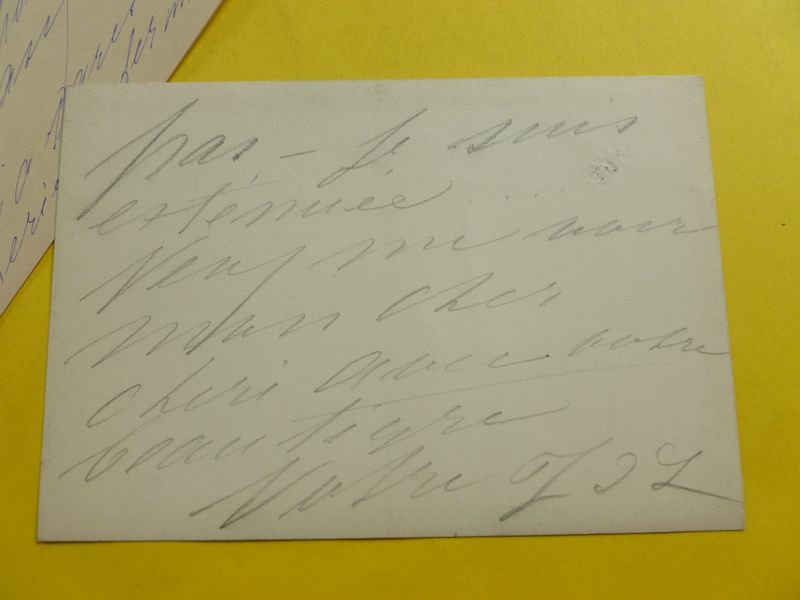 pas – Je suis
exténuée ...
Venez me voir
mon cher
cheri avec votre
beau tigre
Votre